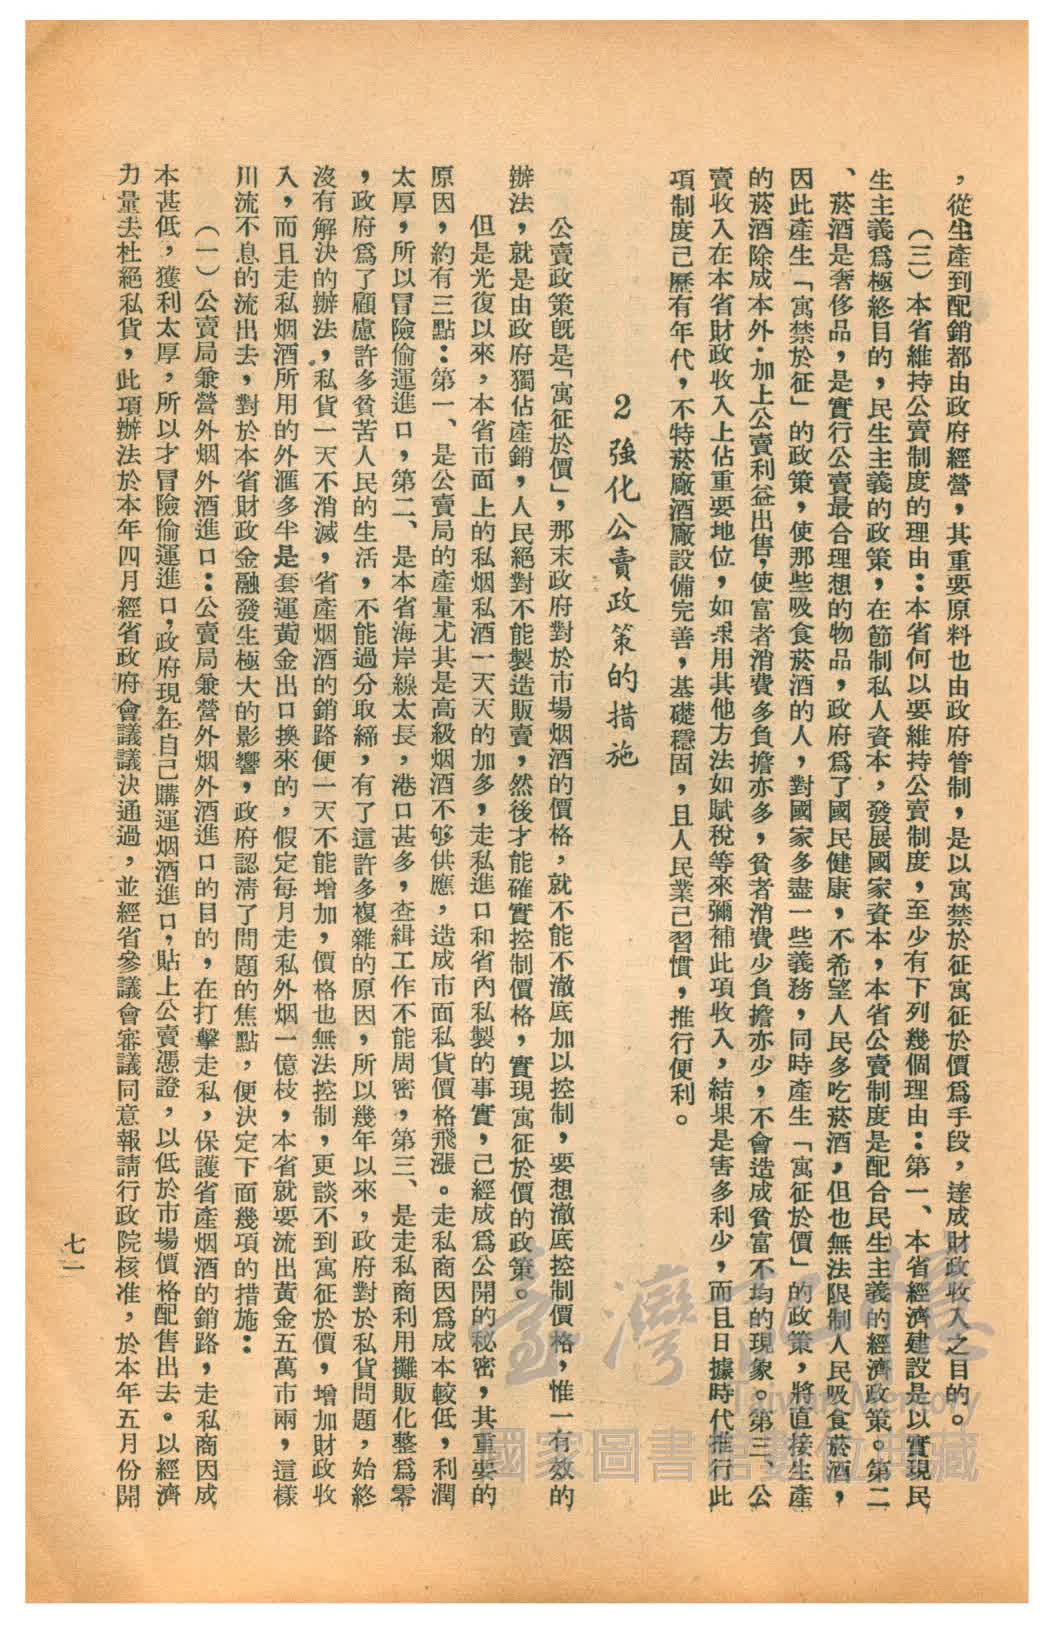 ，從生產到配銷都由政府經營，其重要原料也由政府管制，是以寓禁於征寓征於價爲手段，達成財政收入之目的。
（三）本省維持公賣制度的理由：本省何以要維持公賣制度，至少有下列幾個理由：第一、本省經濟建設是以實現民
生主義爲極終目的，民生主義的政策，在節制私人資本，發展國家資本，本省公賣制度是配合民生主義的經濟政策。第二
、菸酒是奢侈品，是實行公賣最合理想的物品，政府爲了國民健康，不希望人民多吃菸酒，但也無法限制人民吸食菸酒，
因此產生「寓禁於征」的政策，使那些吸食菸酒的人，對國家多盡一些義務，同時產生「寓征於價」的政策，將直接生產
的菸酒除成本外·加上公賣利益出售，使富者消費多負擔亦多，貧者消費少負擔亦少，不會造成貧富不均的現象。第三、公
賣收入在本省財政收入上佔重要地位，如釆用其他方法如賦稅等來彌補此項收入，結果是害多利少，而且日據時代推行此
項制度已歷有年代，不特菸廠酒廠設備完善，基礎穩固，且人民業已習慣，推行便利。
2 強化公賣政策的措施
公賣政策旣是「寓征於價」，那末政府對於市場烟酒的價格，就不能不澈底加以控制，要想澈底控制價格，惟一有效的
辦法，就是由政府獨佔產銷，人民絕對不能製造販賣，然後才能確實控制價格，實現寓征於價的政策。
但是光復以來，本省市面上的私烟私酒一天天的加多，走私進口和省內私製的事實，已經成爲公開的秘密，其重要的
原因，約有三點：第一、是公賣局的產量尤其是高級烟酒不够供應，造成市面私貨價格飛漲。走私商因爲成本較低，利潤
太厚，所以冒險偷運進口，第二、是本省海岸線太長，港口甚多，查緝工作不能周密，第三、是走私商利用攤販化整爲零
，政府爲了顧慮許多貧苦人民的生活，不能過分取締，有了這許多複雜的原因，所以幾年以來，政府對於私貨問題，始終
沒有解決的辦法，私貨一天不消滅，省產烟酒的銷路便一天不能增加，價格也無法控制，更談不到寓征於價，增加財政收
入，而且走私烟酒所用的外滙多半是套運黃金出口換來的，假定每月走私外烟一億枝，本省就要流出黃金五萬市兩，這樣
川流不息的流出去，對於本省財政金融發生極大的影響，政府認淸了問題的焦點，便決定下面幾項的措施：
（一）公賣局兼營外烟外酒進口：公賣局兼營外烟外酒進口的目的，在打擊走私，保護省產烟酒的銷路，走私商因成
本甚低，獲利太厚，所以才冒險偷運進口，政府現在自己購運烟酒進口，貼上公賣憑證，以低於市場價格配售出去。以經濟
力量去杜絕私貨，此項辦法於本年四月經省政府會議議決通過，並經省參議會審議同意報請行政院核准，於本年五月份開
七一
臺灣記憶
Taiwan Memory
國家圖書館數位典藏